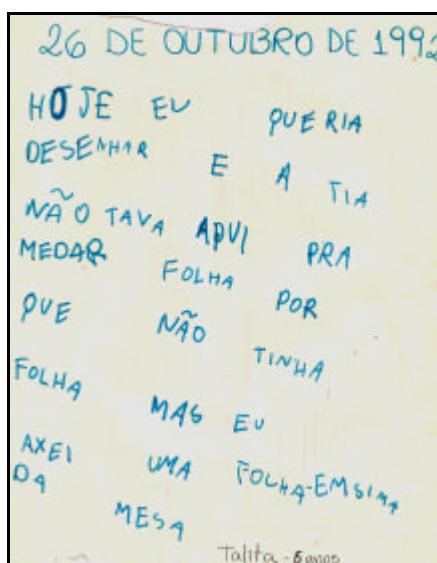 26 DE OUTUBRO DE 1992
HOJE EU QUERIA
DESENHAR E A TIA
NÃO TAVA AQUI PRA
MEDAR FOLHA POR
QUE NÃO TINHA
FOLHA MAS EU
AXEI UMA FOLHA-EMSIMA
DA MESA
Talita - 6 anos